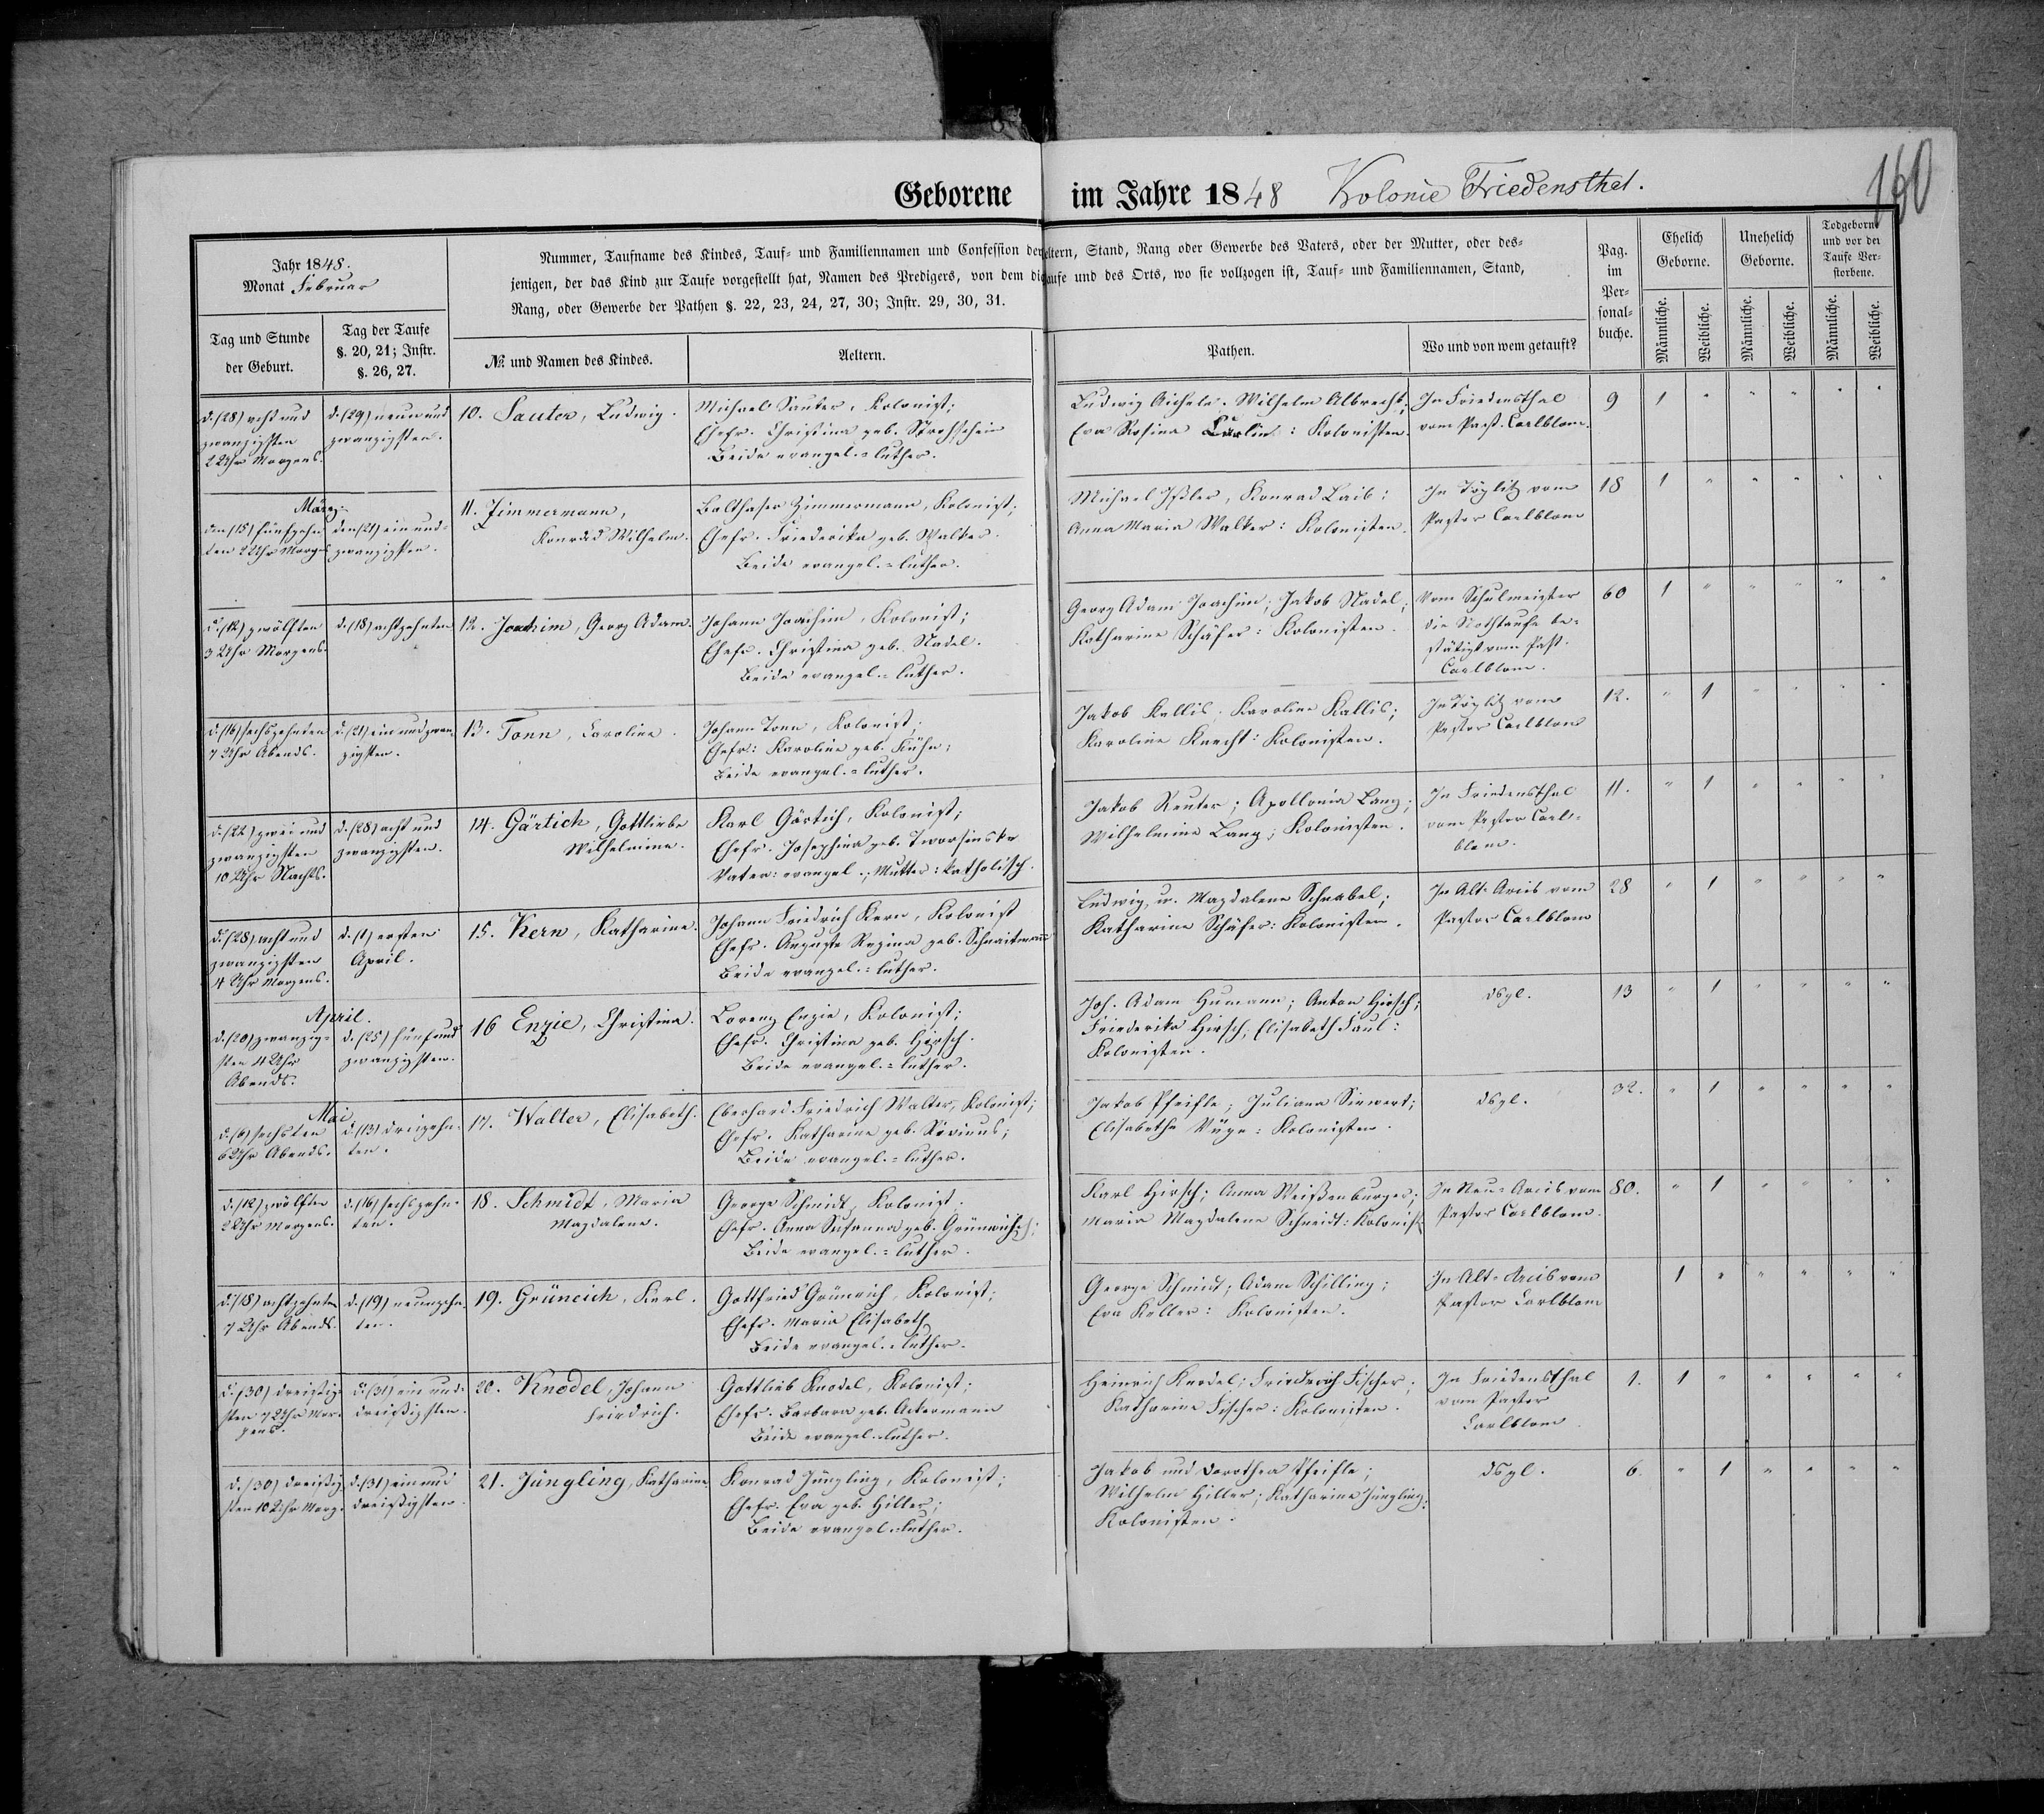 160
Geborene im Jahre 1848 Kolonie Friedensthal.
Jahr 1848.
Monat Februar
Tag und Stunde
der Geburt.
Tag der Taufe
§. 20, 21; Instr.
§. 26, 27.
Nummer, Taufname des Kindes, Tauf- und Familiennamen und Confession der eltern, Stand, Rang oder Gewerbe des Vaters, oder der Mutter, oder des-
jenigen, der das Kind zur Taufe vorgestellt hat, Namen des Predigers, von dem die aufe und des Orts, wo sie vollzogen ist, Tauf- und Familiennamen, Stand,
Rang, oder Gewerbe der Pathen §. 22, 23, 24, 27, 30; Instr. 29, 30, 31.
№ und Namen des Kindes.
Aeltern.
Pathen.
Wo und von wem getauft?
Pag.
im
Per-
sonal-
buche.
Ehelich
Geborne.
Unehelich
Geborne.
Todgeborne
und vor der
Taufe Ver-
storbene.
Männliche.
Weibliche.
Männliche.
Weibliche.
Männliche.
Weibliche.
d. (28) acht und
zwanzigsten
2 Uhr Morgens.
d. (29) neun und
zwanzigsten.
10. Sauter, Ludwig.
Michael Sauter, Kolonist;
Ehefr. Christina geb. Strohschein
Beide evangel.-luther.
Ludwig Aichele. Wilhelm Albrecht;
Eva Rosina : Kolonisten.
In Friedensthal
vom Past. Carlblom.
9 1 " " " " "
März.
den (15) fünfzehn-
ten 2 Uhr Morgens
den (21) ein und-
zwanzigsten.
11. Zimmermann,
Konrad Wilhelm.
Balthaser Zimmermann, Kolonist;
Ehefr. Friederika geb. Walker.
Beide evangel.-luther.
Michael Ißler, Konrad Laib:
Anna Maria Walker: Kolonisten.
In Töplitz vom
Pastor Carlblom
18 1 " " " " "
d. (12) zwölften
3 Uhr Morgens.
d. (18) achtzehnten
12. Joachim, Georg Adam.
Johann Joachim, Kolonist;
Ehefr. Christina geb. Nadel.
Beide evangel.-luther.
Georg Adam Joachim; Jakob Nadel;
Katharine Schäfer: Kolonisten.
Vom Schulmeister
die Nothtaufe be-
stätigt vom Past.
Carlblom.
60 1 " " " " "
d. (16) sechszehnten
7 Uhr Abends.
d. (21) ein und zwan-
zigsten.
13. Tonn, Caroline.
Johann Tonn, Kolonist;
Ehefr: Karoline geb. Kühn;
Beide evangel.-luther.
Jakob Kallis, Karoline Kallis;
Karoline Knecht: Kolonisten.
In Töplitz vom
Pastor Carlblom
12. " 1 " " " "
d. (22) zwei und
zwanzigsten
10 Uhr Nachts.
d. (28) acht und
zwanzigsten.
14. Gärtich, Gottliebe
Wilhelmine.
Karl Gärtich, Kolonist;
Ehefr. Josephina geb. Tworsinska
Vater: evangel.; Mutter: katholisch.
Jakob Reuter; Apollonia Lang;
Wilhelmine Lang; Kolonisten.
In Friedensthal
vom Pastor Carl-
blom.
11. " 1 " " " "
d. (28) acht und
zwanzigsten
4 Uhr Morgens.
d. (1) ersten
April.
15. Kern, Katharine.
Johann Friedrich Kern, Kolonist
Ehefr. Auguste Regina geb. Schnaitmann
Beide evangel.-luther.
Ludwig u. Magdalena Schnabel;
Katharine Schäfer: Kolonisten.
In Alt-Arcis vom
Pastor Carlblom
28 " 1 " " " "
April.
d. (20) zwanzig-
sten 4 Uhr
Abends.
d. (25) fünf und
zwanzigsten.
16 Enzie, Christina.
Lorenz Enzie, Kolonist;
Ehefr. Christina geb. Hirsch.
Beide evangel.-luther.
Joh. Adam Humann; Anton Hirsch;
Friederike Hirsch, Elisabeth Faul:
Kolonisten.
dsgl.
13 " 1 " " " "
Mai
d. (6) sechsten
6 Uhr Abends.
d. (13) dreizehn-
ten.
17. Walter, Elisabeth.
Eberhard Friedrich Walter, Kolonist;
Ehefr. Katharine geb.
Beide evangel.-luther.
Jakob Pfeifle; Juliana Siewert;
Elisabetha : Kolonisten.
dsgl.
32. " 1 " " " "
d. (12) zwölften
2 Uhr Morgens.
d. (16) sechszehn-
ten.
18. Schmidt, Maria
Magdalena.
George Schmidt, Kolonist.
Ehefr. Anna Susanna geb. Grüneich;
Beide evangel.-luther.
Karl Hirsch; Anna Weißenburger;
Maria Magdalena Schmidt: Kolonist.
In Neu-Arcis vom
Pastor Carlblom.
80. " 1 " " " "
d. (18) achtzehnten
7 Uhr Abends.
d. (19) neunzehn-
ten.
19. Grüneich, Karl.
Gottfried Grüneich, Kolonist;
Ehefr. Maria Elisabeth
Beide evangel.-luther.
George Schmidt; Adam Schilling;
Eva Keller: Kolonisten.
In Alt-Arcis vom
Pastor Carlblom
1 " " " " "
d. (30) dreißig-
sten 7 Uhr Mor-
gens.
d. (31) ein und-
dreißigsten.
20. Knodel, Johann
Friedrich.
Gottlieb Knodel, Kolonist;
Ehefr. Barbara geb. Ackermann
Beide evangel.-luther.
Heinrich Knodel; Friedrich Fischer;
Katharine Fischer: Kolonisten.
In Friedensthal
vom Pastor
Carlblom
1. 1 " " " " "
d. (30) dreißig-
sten 10 Uhr Morg.
d. (31) ein und
dreißigsten.
21. Jüngling, Katharine
Konrad Jüngling, Kolonist;
Ehefr. Eva geb. Hiller;
Beide evangel.-luther.
Jakob und Dorothea Pfeifle;
Wilhelm Hiller; Katharine Jüngling:
Kolonisten.
dsgl.
6. " 1 " " " "